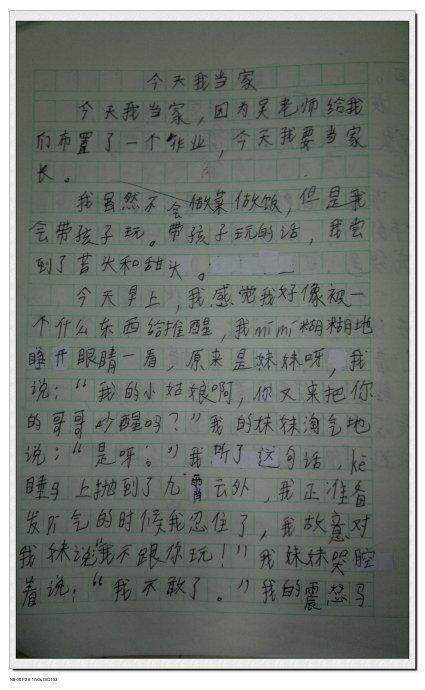 今天我当家
今天我当家，因为吴老师给我
们布置了一个作业，今天我要当家
长。
我虽然不会做菜做饭，但是我
会带孩子玩。带孩子玩的话，我尝
到了苦头和甜头。
今天早上，我感觉我好像被一
个什么东西给推醒，我mímí糊糊地
睁开眼睛一看，原来是妹妹呀，我
说：“我的小姑娘啊，你又来把你
的哥哥吵醒吗？”我的妹妹淘气地
说：“是呀。”我听了这句话，kē
睡马上抛到了九霄云外，我正准备
发火气的时候我忍住了，我故意对
我妹说“我不跟你玩！”我妹妹哭腔
着说：“我不敢了。”我的震怒马